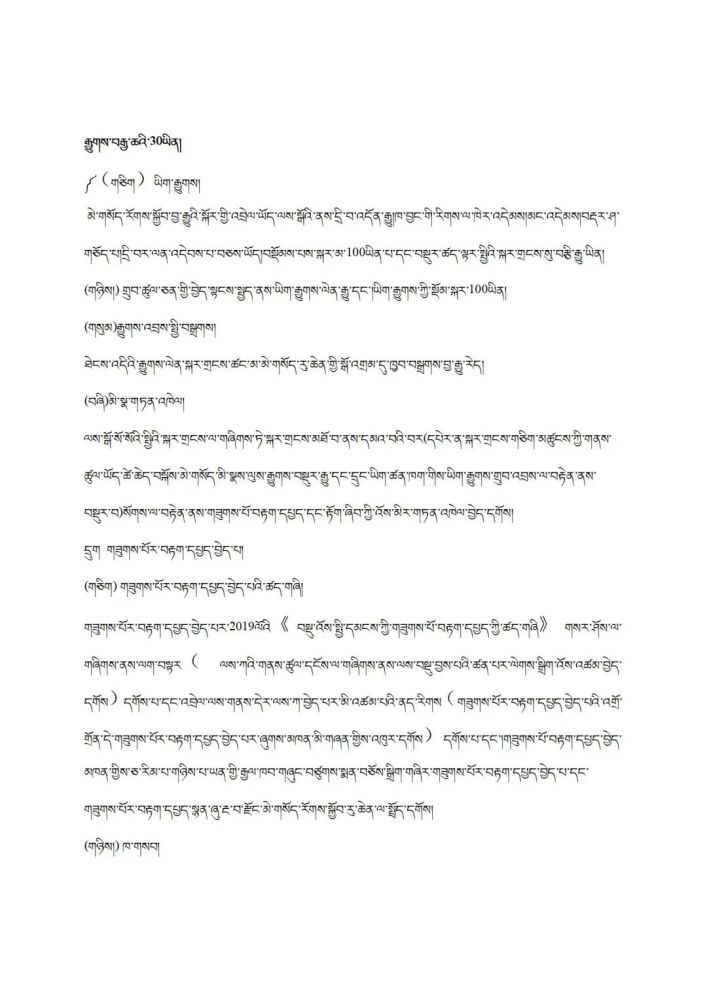 རྒྱུགས་བརྒྱ་ཆའི་30ཡིན།
༼（གཅིག） ཡིག་རྒྱུགས།
མེ་གསོད་རོགས་སྐྱོབ་བྱ་རྒྱུའི་སྐོར་གྱི་འབྲེལ་ཡོད་ལས་སྒོའི་ནས་དྲི་བ་འདོན་རྒྱུ།ཁ་བྱང་གི་རིགས་ལ་ཁེར་འདེམས།མང་འདེམས།བརྡར་ཤ་
གཅོད་པ།དྲི་བར་ལན་འདེབས་པ་བཅས་ཡོད།བསྡོམས་པས་སྐར་མ་100ཡིན་པ་དང་བསྡུར་ཚད་ལྟར་སྤྱིའི་སྐར་གྲངས་སུ་བརྩི་རྒྱུ་ཡིན།
(གཉིས།) གྲུབ་ཚུལ་ཅན་གྱི་བྱེད་སྟངས་སྤྱད་ནས་ཡིག་རྒྱུགས་ལེན་རྒྱུ་དང་།ཡིག་རྒྱུགས་ཀྱི་སྡོམ་སྐར་100ཡིན།
(གསུམ)རྒྱུགས་འབྲས་སྤྱི་བསྒྲགས།
ཐེངས་འདིའི་རྒྱུགས་ལེན་སྐར་གྲངས་ཚང་མ་མེ་གསོད་རུ་ཆེན་གྱི་སྒོ་འགྲམ་དུ་ཁྱབ་བསྒྲགས་བྱ་རྒྱུ་རེད།
(བཞི)མི་སྣ་གཏན་འཁེལ།
ལས་སྒོ་སོ་སོའི་སྤྱིའི་སྐར་གྲངས་ལ་གཞིགས་ཏེ་སྐར་གྲངས་མཐོ་བ་ནས་དམའ་བའི་བར(དཔེར་ན་སྐར་གྲངས་གཅིག་མཚུངས་ཀྱི་གནས་
ཚུལ་ཡོད་ཚེ་ཆེད་བསྐོས་མེ་གསོད་མི་སྣས་ལུས་རྒྱུགས་བསྡུར་རྒྱུ་དང་དྲུང་ཡིག་ཚན་ཁག་གིས་ཡིག་རྒྱུགས་གྲུབ་འབྲས་ལ་བརྟེན་ནས་
བསྡུར་བ)སོགས་ལ་བརྟེན་ནས་གཟུགས་པོ་བརྟག་དཔྱད་དང་རྟོག་ཞིབ་ཀྱི་འོས་མིར་གཏན་འཁེལ་བྱེད་དགོས།
དྲུག གཟུགས་པོར་བརྟག་དཔྱད་བྱེད་པ།
(གཅིག) གཟུགས་པོར་བརྟག་དཔྱད་བྱེད་པའི་ཚད་གཞི།
གཟུགས་པོར་བརྟག་དཔྱད་བྱེད་པར་2019ལོའི《 བསྡུ་འོས་སྤྱི་དམངས་ཀྱི་གཟུགས་པོ་བརྟག་དཔྱད་ཀྱི་ཚད་གཞི》 གསར་ཤོས་ལ་
གཞིགས་ནས་ལག་བསྟར（ ལས་ཀའི་གནས་ཚུལ་དངོས་ལ་གཞིགས་ནས་ལས་བསྡུ་བྱས་པའི་ཚན་པར་ལེགས་སྒྲིག་འོས་འཚམ་བྱེད་
དགོས）དགོས་པ་དང་འབྲེལ་ལས་གནས་དེར་ལས་ཀ་བྱེད་པར་མི་འཚམ་པའི་ནད་རིགས（གཟུགས་པོར་བརྟག་དཔྱད་བྱེད་པའི་འགྲོ་
གྲོན་དེ་གཟུགས་པོར་བརྟག་དཔྱད་བྱེད་པར་ཞུགས་མཁན་མི་གཞན་གྱིས་འཁུར་དགོས） དགོས་པ་དང་།གཟུགས་པོ་བརྟག་དཔྱད་བྱེད་
མཁན་གྱིས་ཅ་རིམ་པ་གཉིས་པ་ཡན་གྱི་རྒྱལ་ཁབ་གཞུང་བཙུགས་སྨན་བཅོས་སྒྲིག་གཞིར་གཟུགས་པོར་བརྟག་དཔྱད་བྱེད་པ་དང་
གཟུགས་པོར་བརྟག་དཔྱད་སྙན་ཞུ་རྔ་བ་རྫོང་མེ་གསོད་རོགས་སྐྱོབ་རུ་ཆེན་ལ་སྤྲོད་དགོས།
(གཉིས།) ཁ་གསབ།